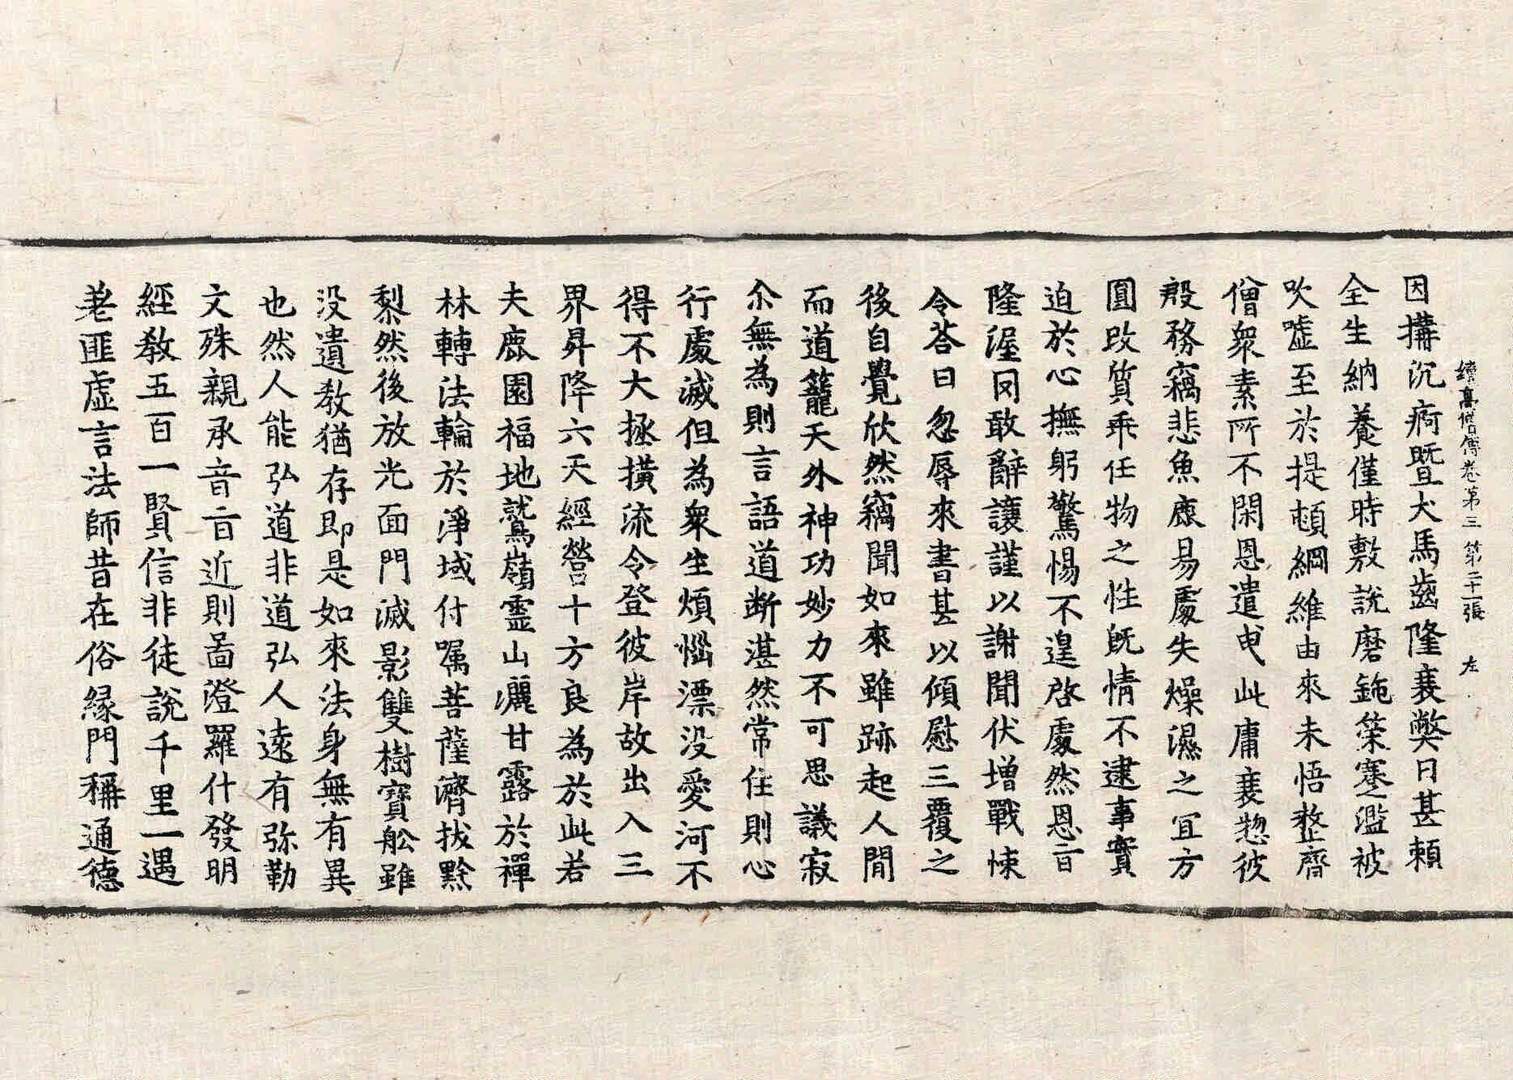 續高僧傳卷第三　第二十一張　左
因搆沉痾暨犬馬齒隆衰弊日甚賴
全生納養僅時敷說磨鈍策蹇濫被
吹噓至於提頓綱維由來未悟整齊
僧衆素所不閑恩遣曳此庸衰惣彼
殷務竊悲魚鹿易處失燥濕之宜方
圓改質乖任物之性旣情不逮事實
迫於心撫躬驚惕不遑啓處然恩旨
隆渥罔敢辭讓謹以謝聞伏增戰悚
令荅曰忽辱來書甚以傾慰三覆之
後自覺欣然竊聞如來雖跡起人閒
而道籠天外神功妙力不可思議寂
尒無為則言語道斷湛然常住則心
行處滅但為衆生煩惱漂沒愛河不
得不大拯橫流令登彼岸故出入三
界昇降六天經營十方良為於此若
夫鹿園福地鷲嶺靈山灑甘露於禪
林轉法輪於淨域付嘱菩薩濟拔黔
黎然後放光面門滅影雙樹寶舩雖
沒遺敎猶存即是如來法身無有異
也然人能弘道非道弘人遠有弥勒
文殊親承音旨近則啚澄羅什發明
經敎五百一賢信非徒說千里一遇
老匪虛言法師昔在俗緣門稱通德